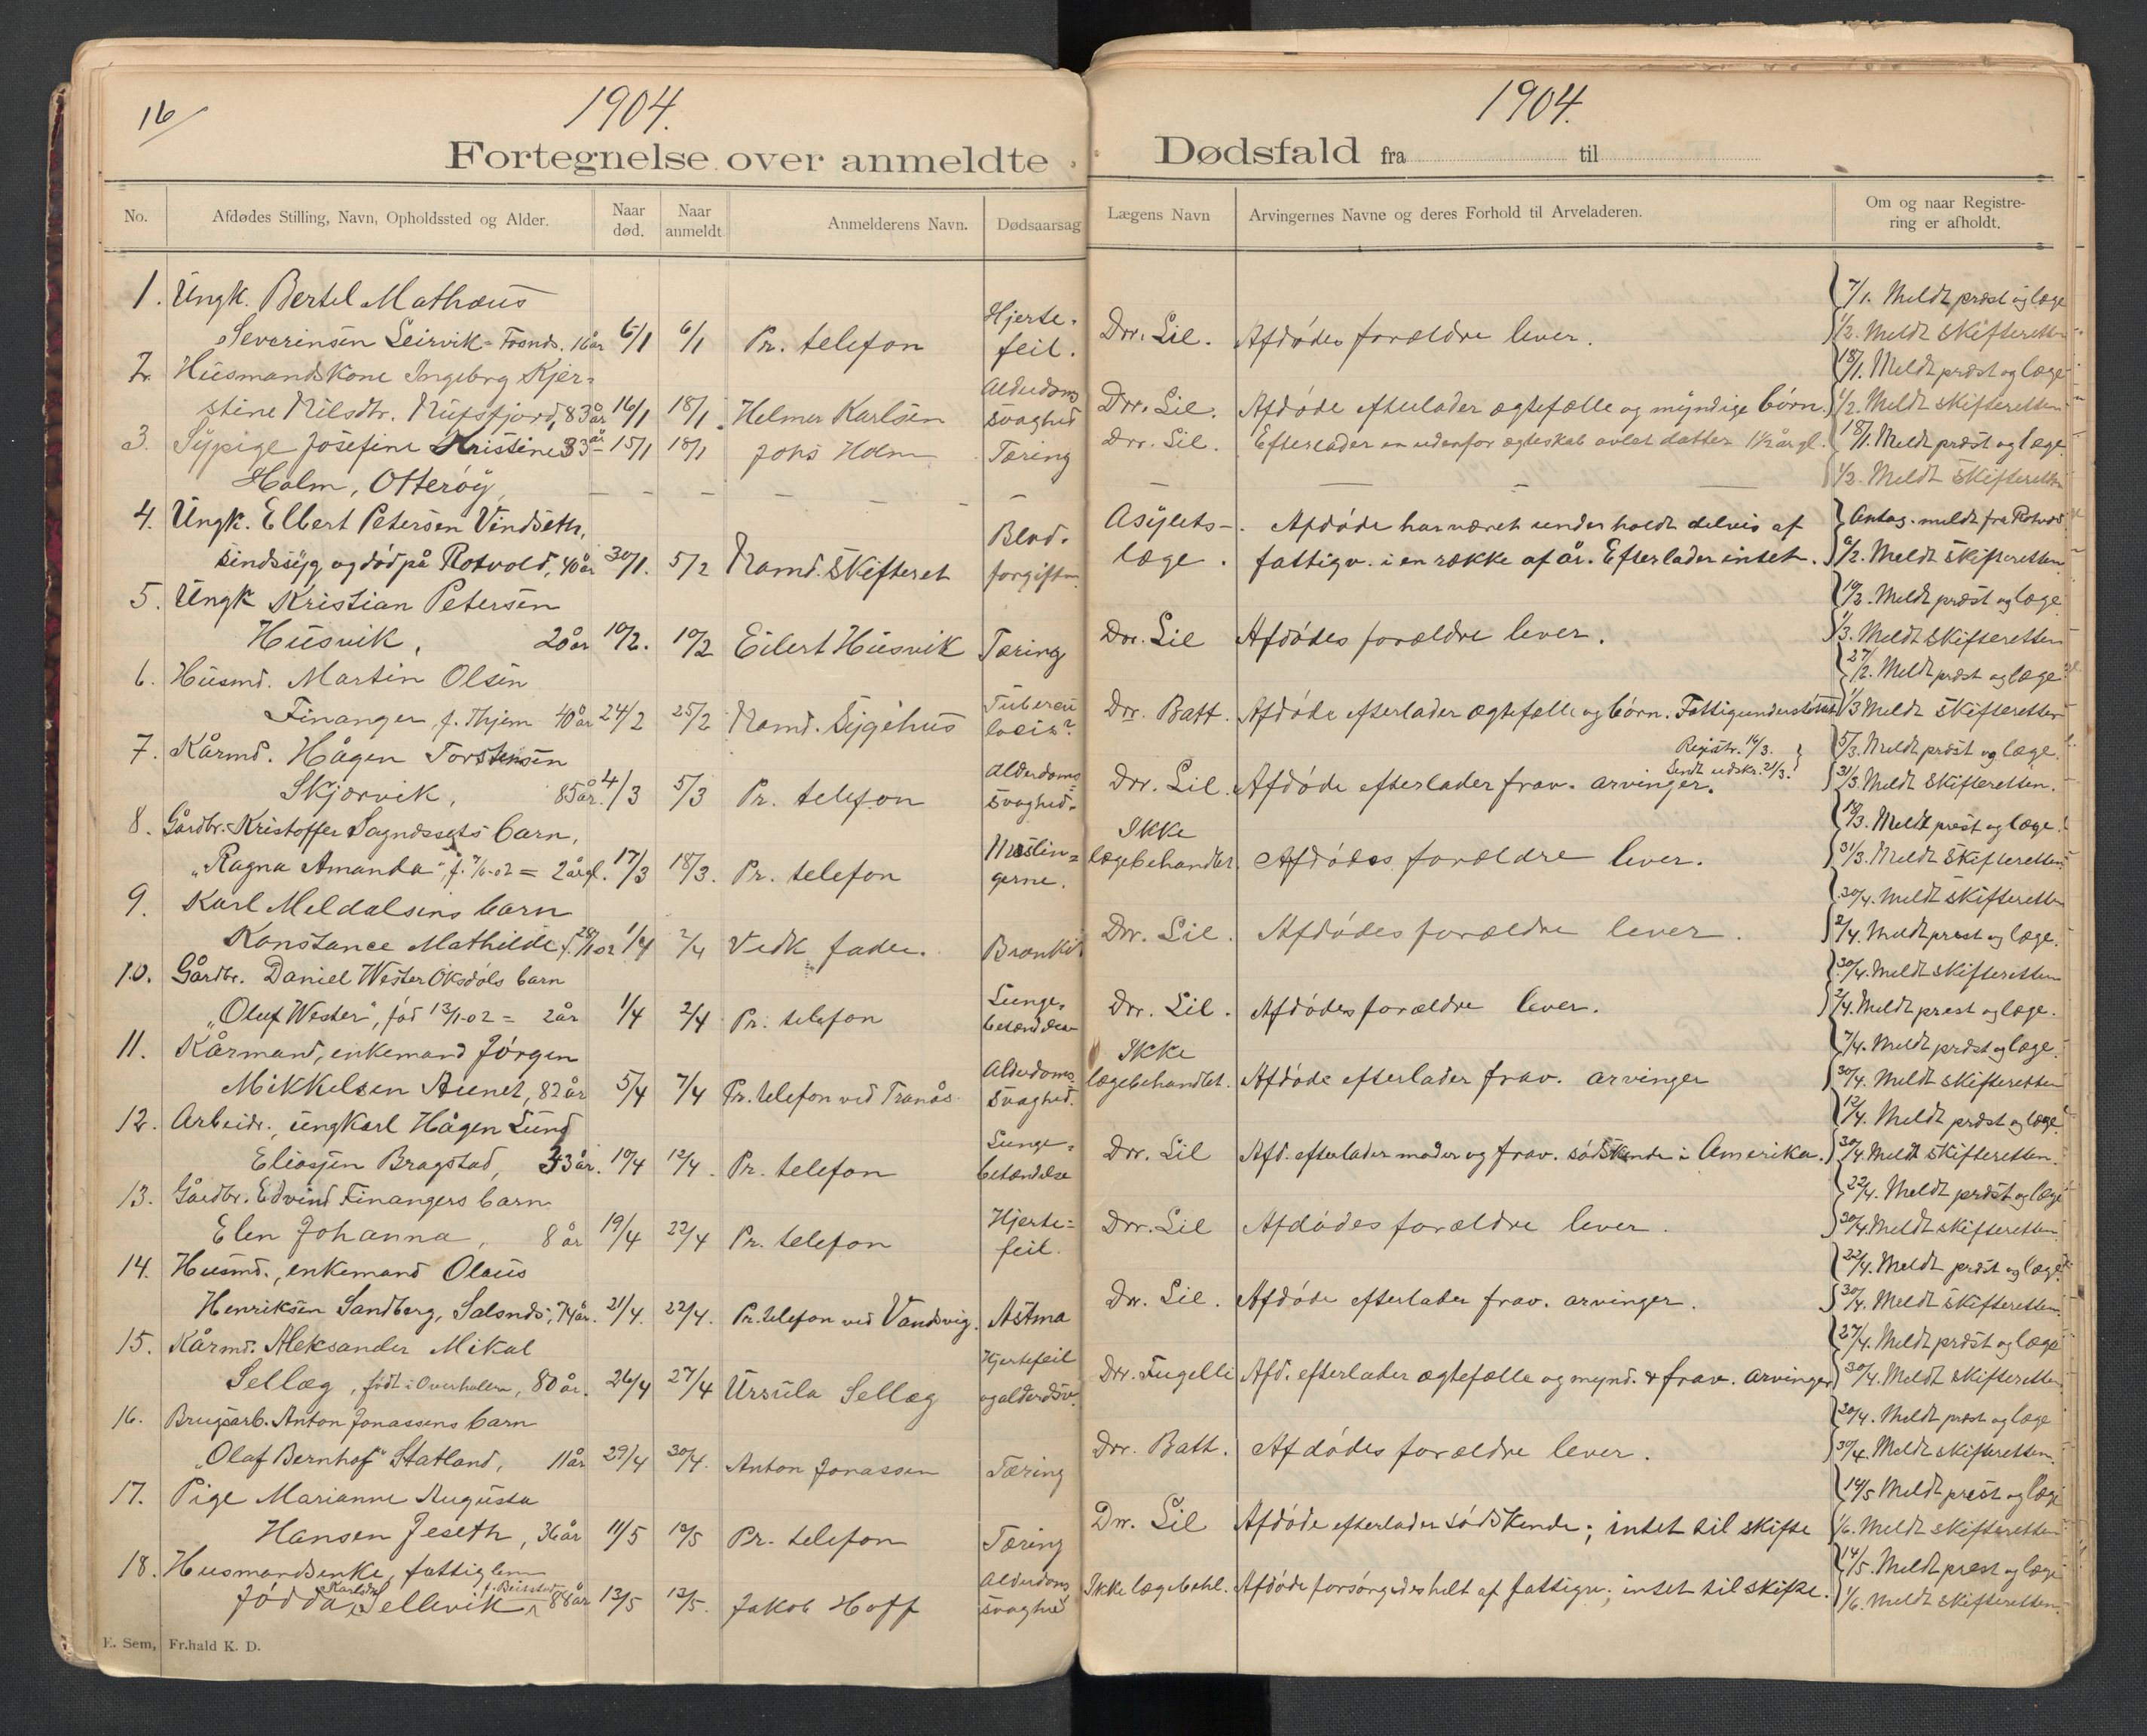 16
1904.
Fortegnelse over anmeldte
No. Afdødes Stilling, Navn, Opholdssted og Alder. Naar død. Naar anmeldt. Anmelderens Navn. Dødsaarsag
1. Ungk. Bertel Mathæus Hjerte-
Severinsen Leirvik - Fosnds. 16 år 5/1 6/1 Pr. telefon feil.
2. Husmandskone Ingeborg Kjer- Alderdoms
stine Nilsdtr. 83 år 16/1 18/1 Helmer Karlsen svaghed
3. Sypige Josefine Kristine 33 år 15/1 18/1 Johs Holm Tæring
Holm, Otterøy,
4. Ungk. Elbert Petersen Vindseth, Blod-
sindssyg og død på Rotvold, 40 år 30/1. 5/2 Namd. Skifteret forgiftn.
5. Ungk Kristian Petersen
Husvik, 20 år 10/2. 10/2 Eilert Husvik Tæring
6. Husmd. Martin Olsen Tubercu
Finanger, f. Thjem 40 år 24/2 25/2 Namd. Sygehus losis?
7. Kårmd. Hågen Torstensen Alderdoms
Skjærvik, 85 år. 4/3 5/3 Pr. telefon svaghed.
8. Gårdbr. Kristoffer barn, Meslin-
"Ragna Amanda", f. 7/6-02 = 2 årgl. 17/3 18/3. Pr. telefon gerne.
9. Karl Meldalsens barn
Konstance Mathilde f. 28/11 02 1/4 2/4 Vedk fader. Bronkit
10. Gårdbr. Daniel Wester Oksdøls barn Lunge-
"Oluf Wester", fød 13/1-02 = 2 år 1/4 2/4 Pr. telefon betændelse
11. Kårmand, enkemand Jørgen Alderdoms
Mikkelsen Aunet, 82 år 5/4 7/4 Pr. telefon ved Tranås. svaghed.
12. Arbeidr., ungkarl Hågen Lund Lunge-
Eliasjen Bragstad, 33 år. 10/4 12/4. Pr. telefon betændelse
13. Gårdbr. Edvind Finangers barn Hjerte-
Elen Johanna, 8 år 19/4 22/4 Pr. telefon feil.
14. Husmd., enkemand Olaus
Henriksen Sandberg, Salsnds, 74 år. 21/4. 22/4. Pr. telefon ved Vandsvig. Astma
15. Kårmd. Aleksander Mikal Hjertefeil
Sellæg, født i Overhalen, 80 år. 26/4 27/4 Ursula Sellæg og alderdsv.
16. Brugsarb. Anton Jonassens barn
"Olaf Bernhof" Statland, 11 år 29/4 30/4. Anton Jonassen Tæring
17. Pige Marianne Augusta
Hansen Jeseth, 36 år 11/5 12/5 Pr. telefon Tæring
18. Husmandsenke, fattiglem Alderdoms
Karlsdtr f. Beitstad
Jødda Sellevik 88 år 13/5 13/5. Jakob Hoff svaghed
E. Sem, Fr.hald K. D.
1904.
Dødsfald fra til
Lægens Navn Arvingernes Navne og deres Forhold til Arveladeren. Om og naar Registre-
ring er afholdt.
7/1. Meldt præst og læge
Dr. Lil. Afdødes forældre lever. 1/2. Meldt skifteretten
18/1. Meldt præst og læge
Dr. Lil. Afdøde efterlader ægtefælle og myndige børn. 1/2. Meldt skifteretten
Dr. Lil. Efterlader en udenfor ægteskab avlet datter 1½ år gl. 18/1. Meldt præst og læge.
1/2. Meldt skifteretten
Asylets- Afdøde har været underholdt delvis af Antag. meldt fra Rotvold
læge. fattigv. i en række af år. Efterlader intet. 6/2. Meldt skifteretten
10/2. Meldt præst og læge
Dr. Lil Afdødes forældre lever. 1/3. Meldt skifteretten
27/2. Meldt præst og læge
Dr. Batt. Afdøde efterlader ægtefælle og børn. Fattigunderstøttet 1/3 Meldt skifteretten
Registr. 16/3. 5/3. Meldt præst og læge.
Sendt udskr. 21/3.
Dr. Lil. Afdøde efterlader frav. arvinger. 31/3. Meldt skifteretten.
Ikke 18/3. Meldt præst og læge.
lægebehandlet. Afdødes forældre lever. 31/3. Meldt skifteretten
30/4. Meldt skifteretten
Dr. Lil. Afdødes forældre lever. 2/4. Meldt præst og læge.
30/4. Meldt skifteretten
Dr. Lil. Afdødes forældre lever. 2/4. Meldt præst og læge.
Ikke 7/4. Meldt præst og læge.
lægebehandlet. Afdøde efterlader frav. arvinger 30/4. Meldt skifteretten
12/4. Meldt præst og læge.
Dr. Lil Afd. efterlader moder og frav. sødskende i Amerika. 30/4. Meldt skifteretten.
22/4. Meldt præst og læge
Dr. Lil Afdødes forældre lever. 30/4. Meldt skifteretten
22/4. Meldt præst og læge
Dr. Lil. Afdøde efterlader frav. arvinger. 30/4. Meldt skifteretten
27/4. Meldt præst og læge
Dr. Fugelli Afd. efterlader ægtefælle og mynd. & frav. arvinger 30/4. Meldt skifteretten
30/4. Meldt præst og læge
Dr. Batt. Afdødes forældre lever. 30/4. Meldt skifteretten.
14/5 Meldt præst og læge
Dr. Lil Afdøde efterlader sødskende; intet til skifte 1/6. Meldt skifteretten
14/5. Meldt præst og læge
Ikke lægebehl. Afdøde forsørgedes helt af fattigv.; intet til skifte. 1/6. Meldt skifteretten.